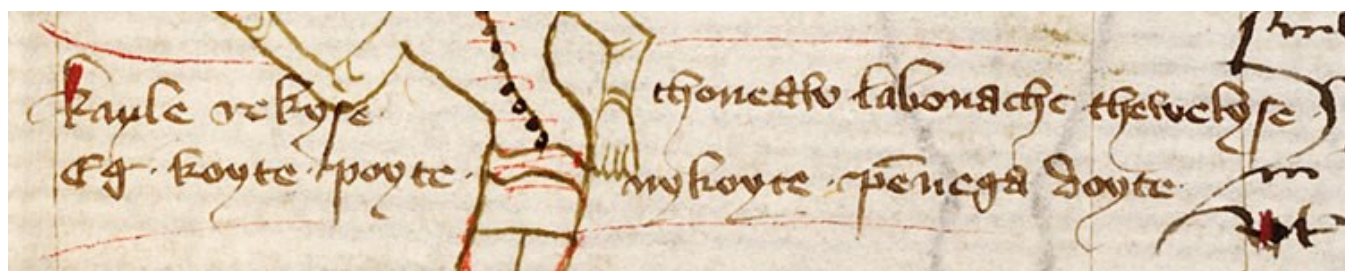 Kayle rekyse· thoneaw labonache thewelyse·
Eg· koyte· poyte· nykoyte· pēnega doyte·